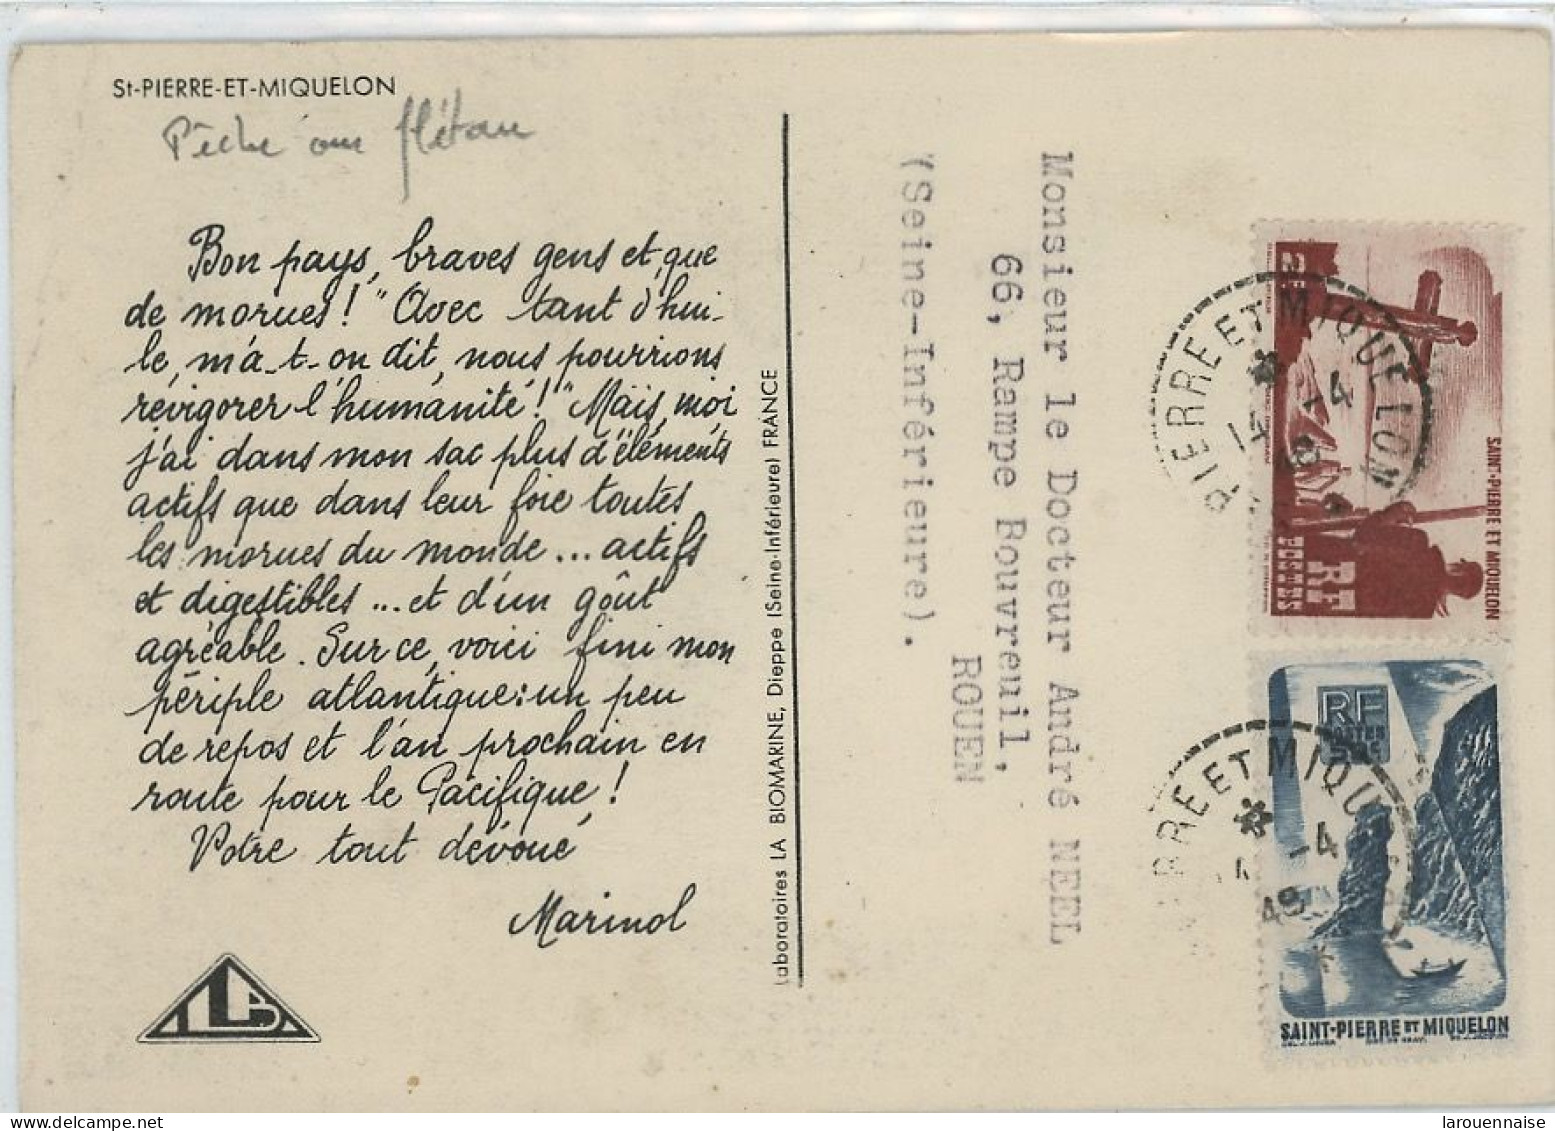 St-PIERRE-ET-MIQUELON
Pêche au flétan
Bon pays, braves gens et que
de morues! "Avec tant d'hui-
le, m'a-t-on dit, nous pourrions
revigorer l'humanité!" Mais, moi
j'ai dans mon sac plus d'éléments
actifs que dans leur foie toutes
les morues du monde... actifs
et digestibles... et d'un goût
agréable. Sur ce, voici fini mon
périple atlantique: un peu
de repos et l'an prochain en
route pour le Pacifique!
Votre tout dévoué
Marinol
Laboratoires LA BIOMARINE, Dieppe (Seine-Inférieure) FRANCE
Monsieur le Docteur André NEEL
66, Rampe Bouvreuil,
ROUEN
(Seine-Inférieure).
SAINT-PIERRE ET MIQUELON
RF
POSTES
PIERRE ET MIQUELON
14 -4
RF
POSTES
SAINT-PIERRE ET MIQUELON
IERRE ET MIQU
-4
49
larouennaise